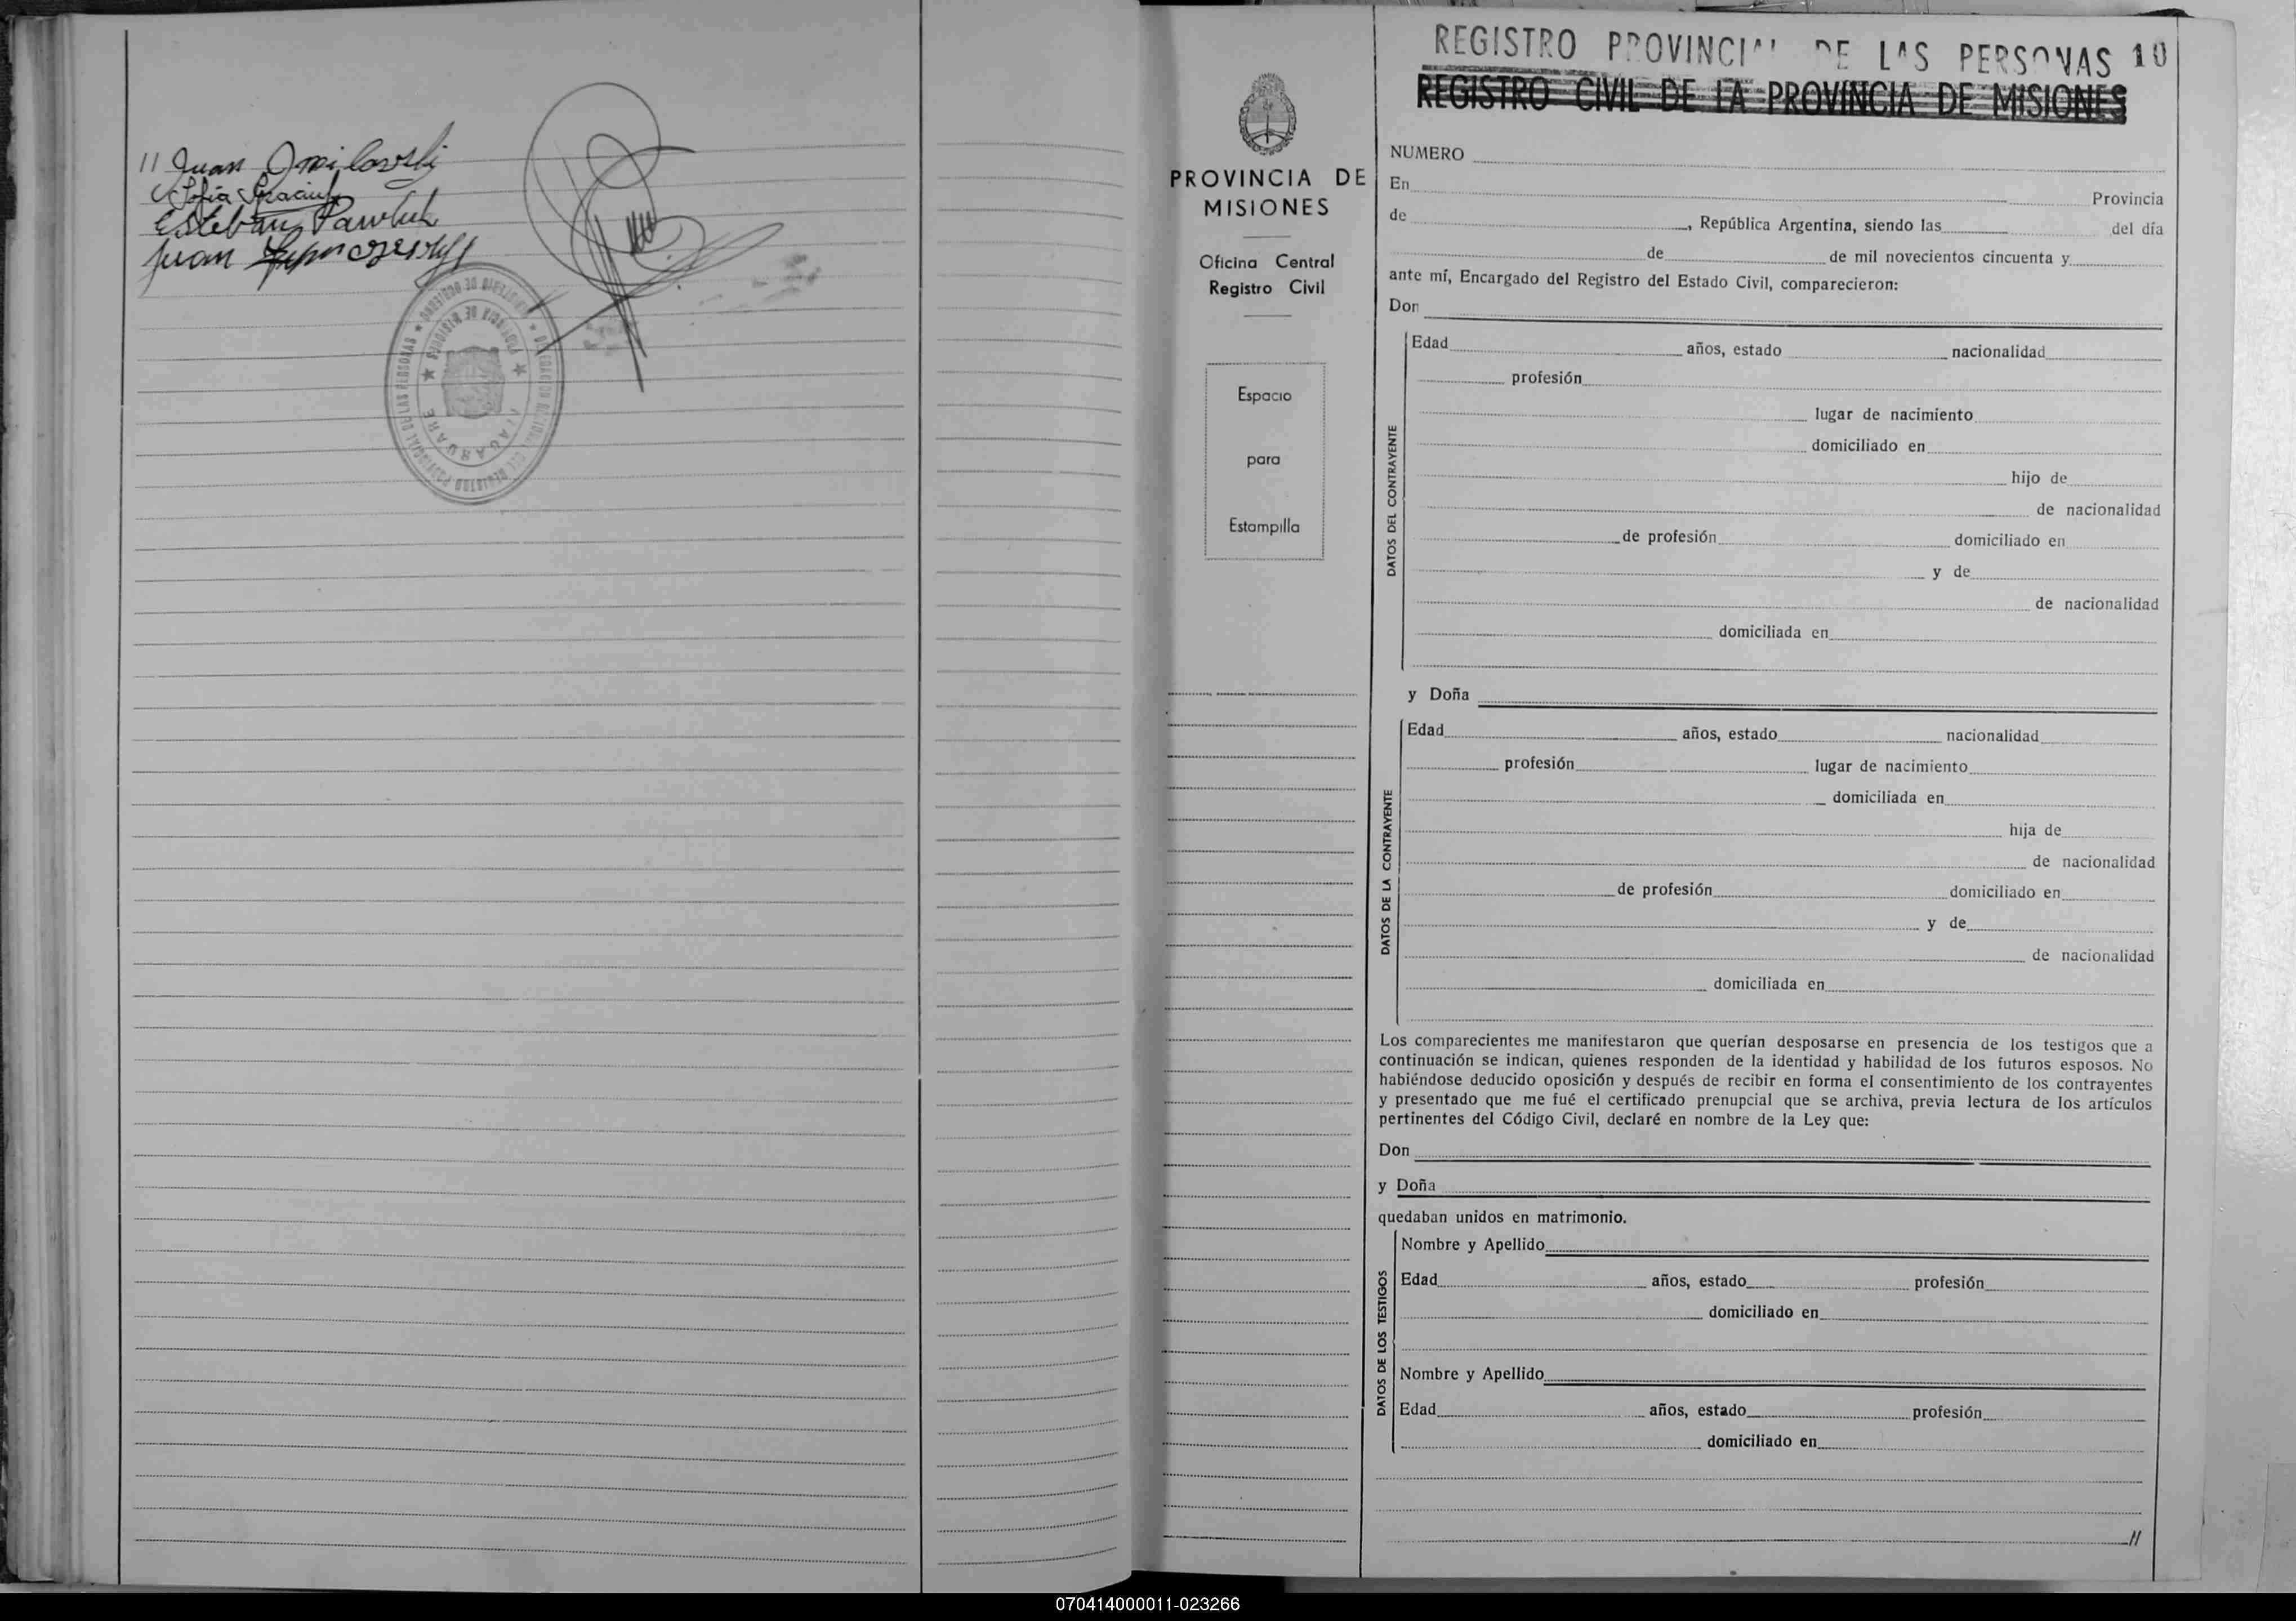 // Juan
Sofia
Esteban Pawluk
Juan
MINISTERIO DE GOBIERNO ★ DELEGACION REGIONAL DEL REGISTRO PROVINCIAL DE LAS PERSONAS ★
PROVINCIA DE MISIONES
PROVINCIA DE
MISIONES
Oficina Central
Registro Civil
Espacio
para
Estampilla
REGISTRO PROVINCIAL DE LAS PERSONAS 10
REGISTRO CIVIL DE LA PROVINCIA DE MISIONES
NUMERO
En Provincia
de , República Argentina, siendo las del día
de de mil novecientos cincuenta y
ante mí, Encargado del Registro del Estado Civil, comparecieron:
Don
DATOS DEL CONTRAYENTE
Edad años, estado nacionalidad
profesión
lugar de nacimiento
domiciliado en
hijo de
de nacionalidad
de profesión domiciliado en
y de
de nacionalidad
domiciliada en
y Doña
DATOS DE LA CONTRAYENTE
Edad años, estado nacionalidad
profesión lugar de nacimiento
domiciliada en
hija de
de nacionalidad
de profesión domiciliado en
y de
de nacionalidad
domiciliada en
Los comparecientes me manifestaron que querían desposarse en presencia de los testigos que a
continuación se indican, quienes responden de la identidad y habilidad de los futuros esposos. No
habiéndose deducido oposición y después de recibir en forma el consentimiento de los contrayentes
y presentado que me fué el certificado prenupcial que se archiva, previa lectura de los artículos
pertinentes del Código Civil, declaré en nombre de la Ley que:
Don
y Doña
quedaban unidos en matrimonio.
DATOS DE LOS TESTIGOS
Nombre y Apellido
Edad años, estado profesión
domiciliado en
Nombre y Apellido
Edad años, estado profesión
domiciliado en
//
070414000011-023266